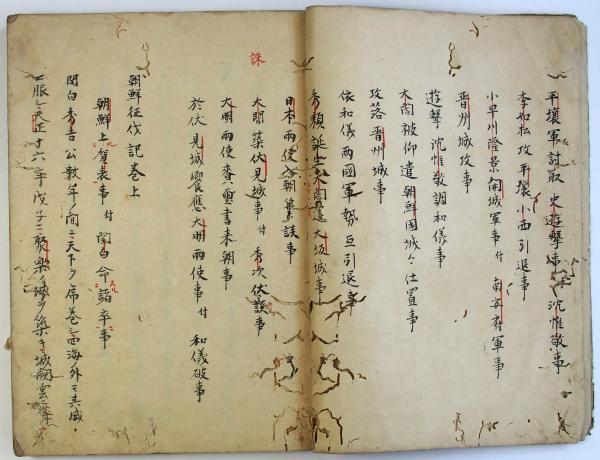 平壤軍討取 史遊撃事 沈惟敬事
李如松攻平壤小西引退事
小早川隆景開城軍事 付 南安府軍事
晋州城攻事
遊撃沈惟敬調和儀事
太閤被仰遣朝鮮国城々仕置事
攻落晋州城事
依和儀両國軍勢互引退事
秀頼誕生太閤還大坂城事
日本両使入朝 談事
誅
太閤築伏見城事 付 秀次伏誅事
大明両使 書来朝事
於伏見城饗應大明両使事 付 和儀破事
朝鮮征伐記巻上
朝鮮上賀表事 付 関白命諸卒事
関白秀吉公数年ノ間ニ天下ヲ席巻シ西海外ニ其威
服ス天正十六年戊子ニ聚楽ノ城ヲ築キ城閣雲ニ聳